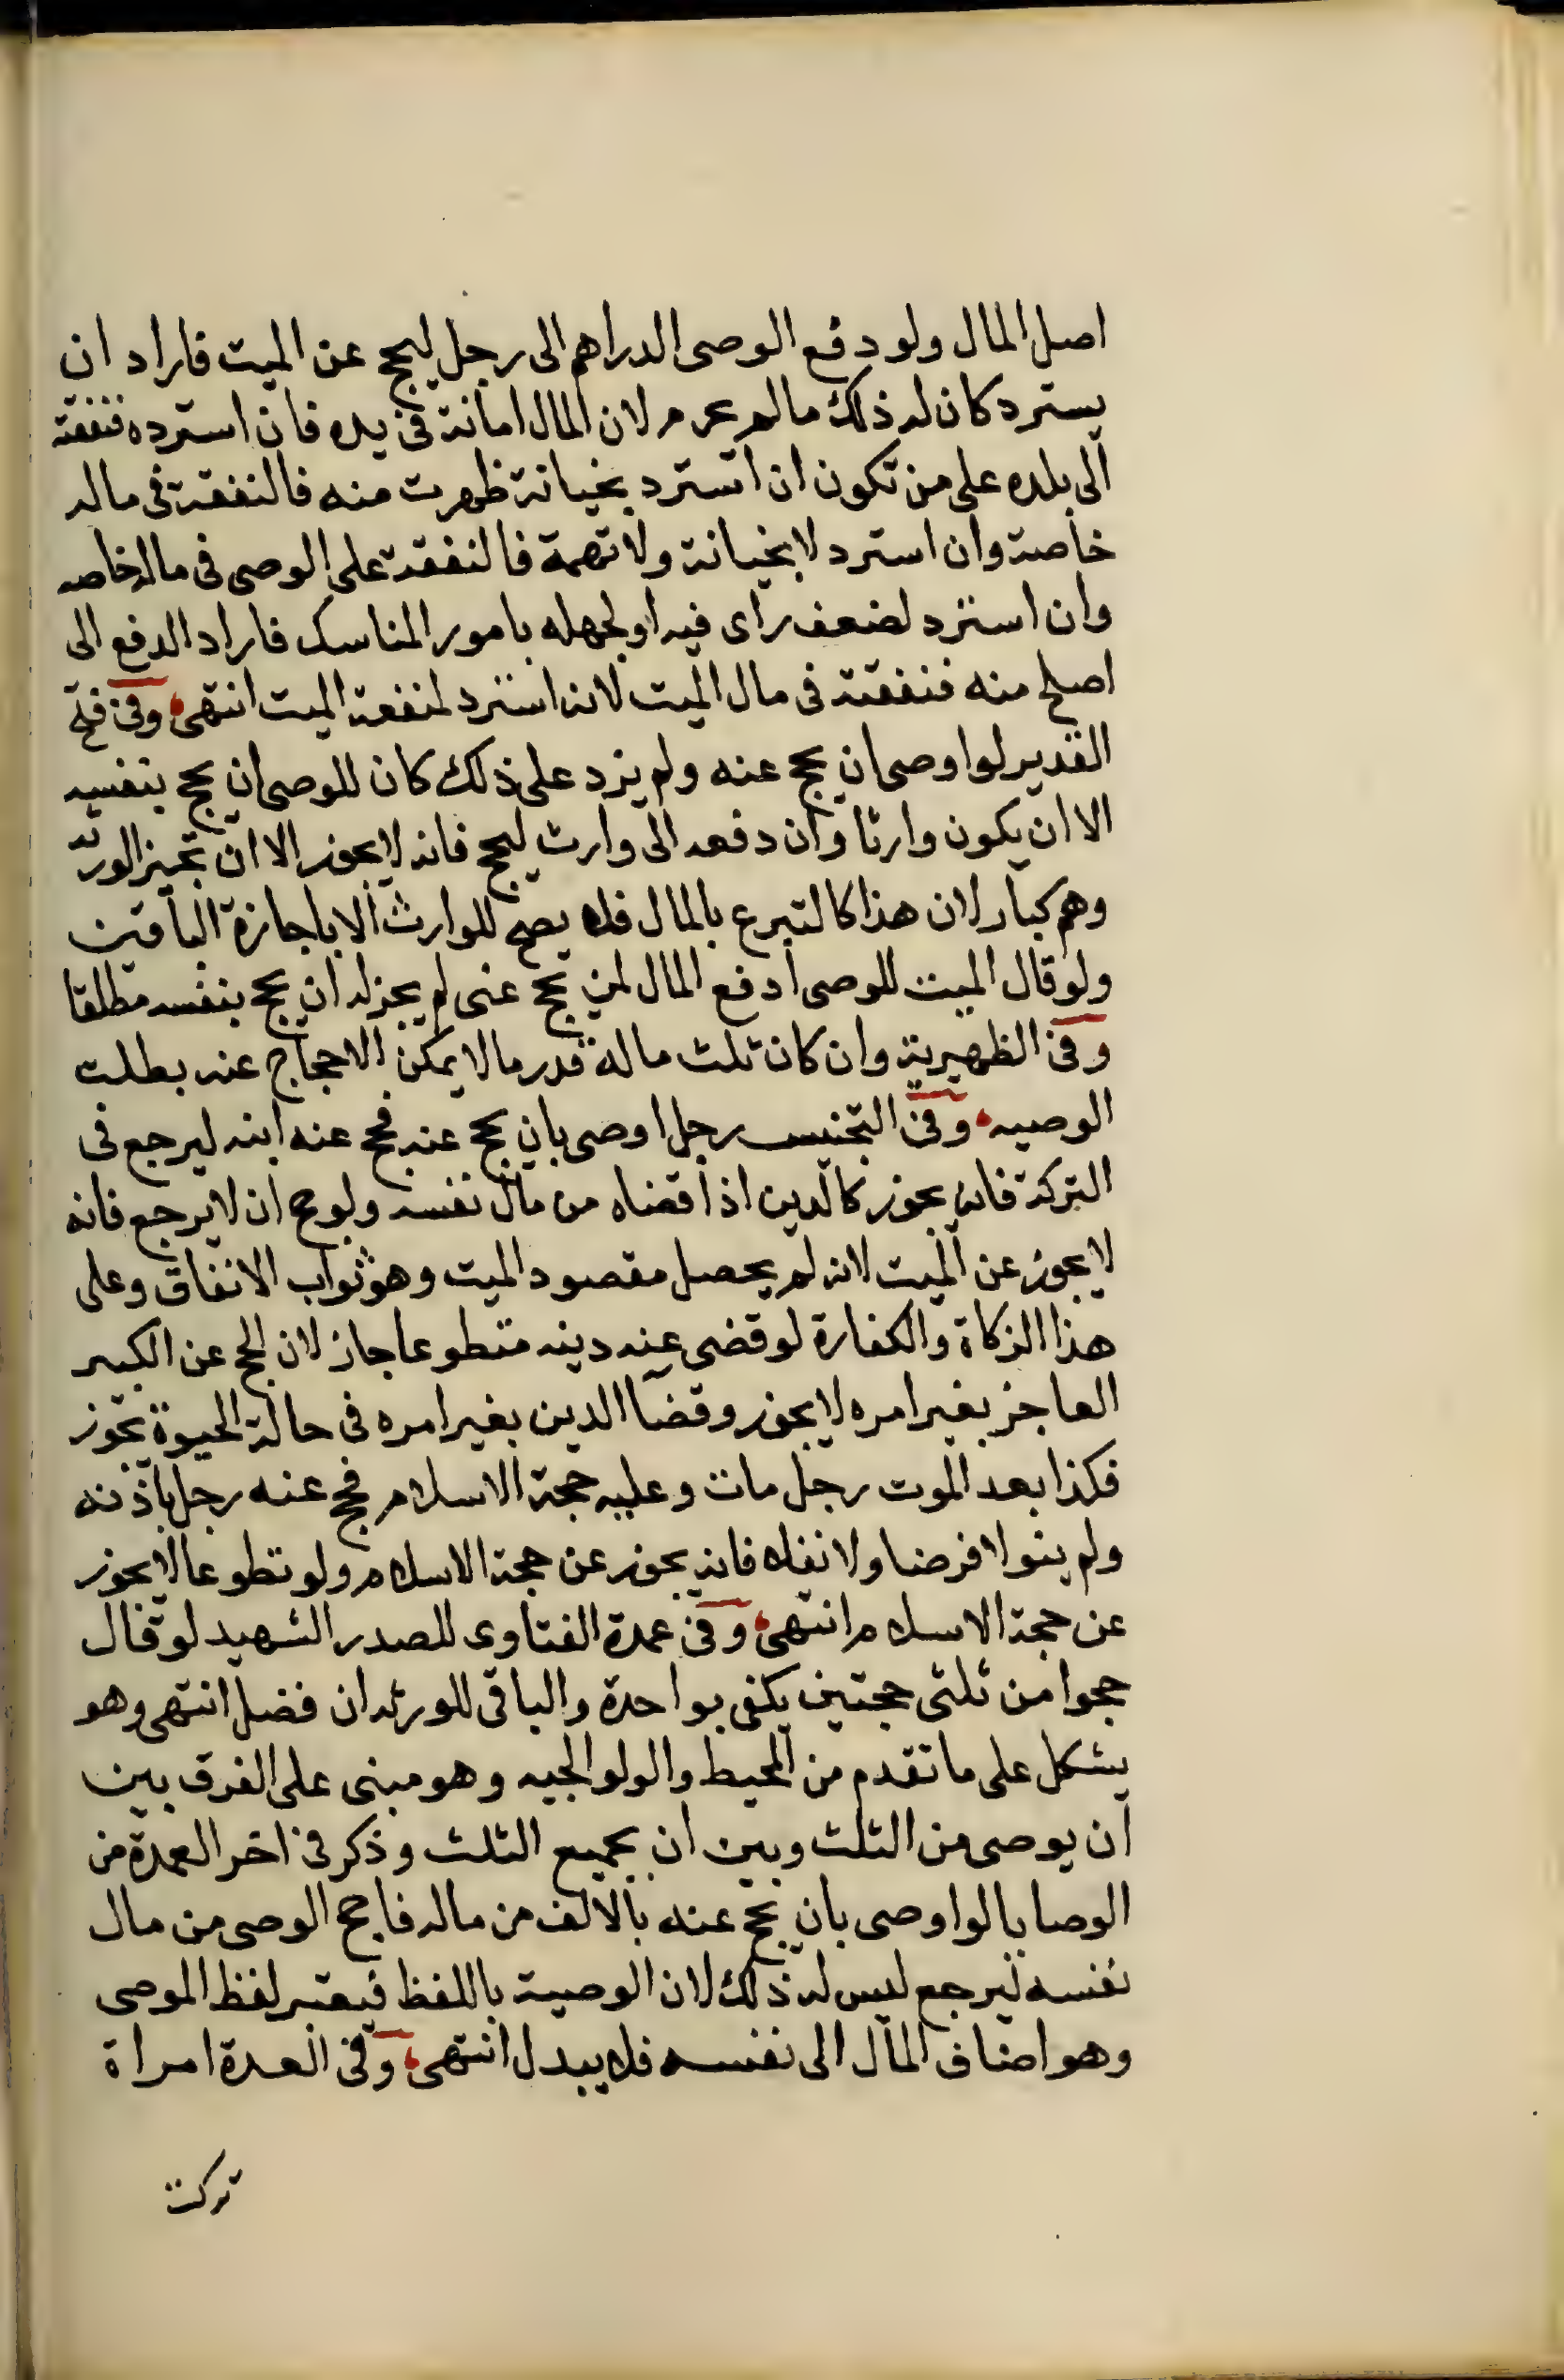 اصل المال ولو دفع الوصى الدراهم الى رجل ليحج عن الميت فاراد ان
يسترد كان له ذلك مالم يحرم لان المال امانة فى يده فان استرده فنفقته
الى بلده على من تكون ان استرد بخيانة ظهرت منه فالنفقة فى ماله
خاصة وان استرد لا بخيانة ولا تهمة فالنفقة على الوصى فى ماله خاصه
وان استرد لضعف راى فيه او لجهله بامور المناسك فاراد الدفع الى
اصلح منه فنفقته فى مال الميت لانه استرد لمنفعة الميت انتهى وفى فتح
القدير لو اوصى ان يحج عنه ولم يزد على ذلك كان للوصى ان يحج بنفسه
الا ان يكون وارثا وان دفعه الى وارث ليحج فانه لا يجوز الا ان تجيز الورثه
وهم كبار لان هذا كالتبرع بالمال فلا يصح للوارث الا باجازة الباقين
ولو قال الميت للوصى ادفع المال لمن يحج عنى لم يجز له ان يحج بنفسه مطلقا
وفى الظهيرية وان كان ثلث ماله قدر مالا يمكن الاحجاج عنه بطلت
الوصيه وفى التجنيس رجل اوصى بان يحج عنه فحج عنه ابنه ليرجع فى
التركة فانه يجوز كالدين اذا قضاه من مال نفسه ولو حج ان لا يرجع فانه
لا يجوز عن الميت لانه لم يحصل مقصود الميت وهو ثواب الانفاق وعلى
هذا الزكاة والكفارة لو قضى عنه دينه متطوعا جاز لان الحج عن الكبير
العاجز بغير امره لا يجوز وقضا الدين بغير امره فى حالة الحيوة يجوز
فكذا بعد الموت رجل مات وعليه حجة الاسلام فحج عنه رجل باذنه
ولم ينو لا فرضا ولا نفلا فانه يجوز عن حجة الاسلام ولو تطوعا لا يجوز
عن حجة الاسلام انتهى وفى عمدة الفتاوى للصدر الشهيد لو قال
حجوا من ثلثى حجتين يكفى بواحدة والباقى للورثه ان فضل انتهى وهو
يشكل على ما تقدم من المحيط والولوالجيه وهو مبنى على الفرق بين
ان يوصى من الثلث وبين ان بجميع الثلث وذكر فى اخر العمدة من
الوصايا لو اوصى بان يحج عنه بالالف من ماله فاحج الوصى من مال
نفسه ليرجع ليس له ذلك لان الوصية باللفظ فيعتبر لفظ الموصى
وهو اضاف المال الى نفسه فلا يبدل انتهى وفى العدة امراة
تركت